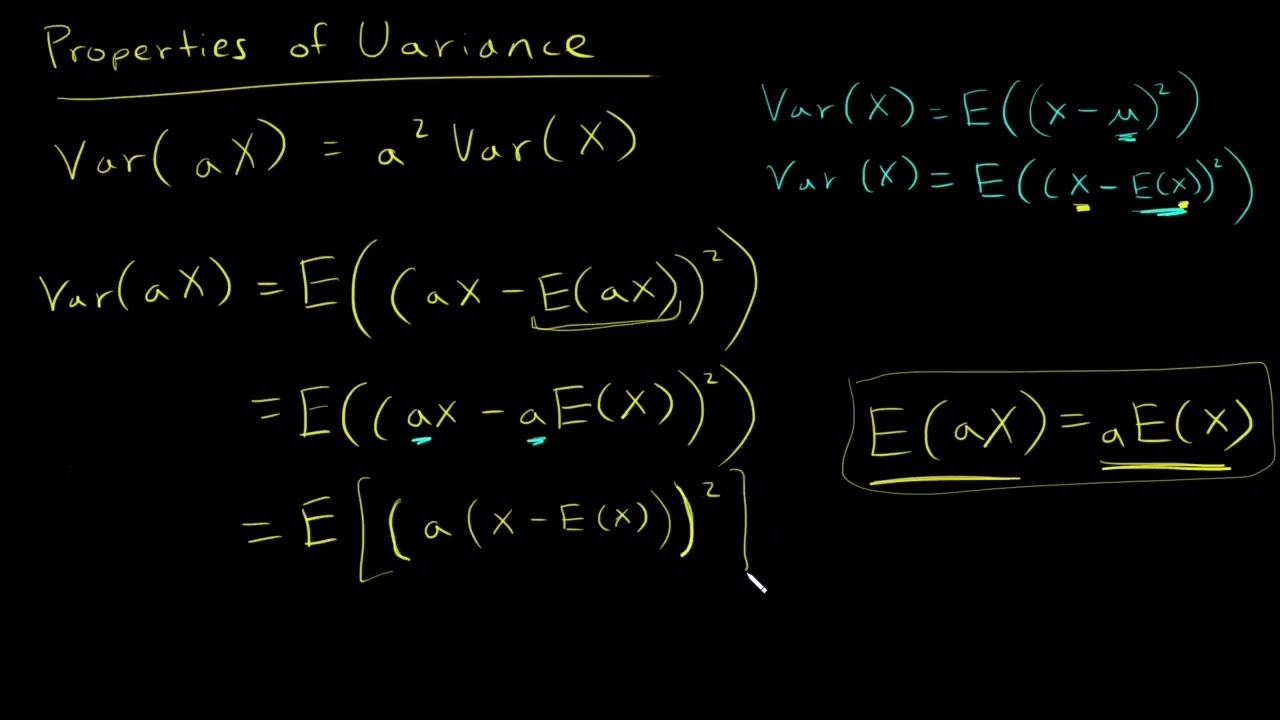 Properties of Variance
Var(aX) = a² Var(X)
Var(X) = E((X-μ)²)
Var(X) = E((X-E(X))²)
Var(aX) = E((aX-E(aX))²)
= E((aX-aE(X))²)
E(aX) = aE(X)
= E[(a(X-E(X)))²]